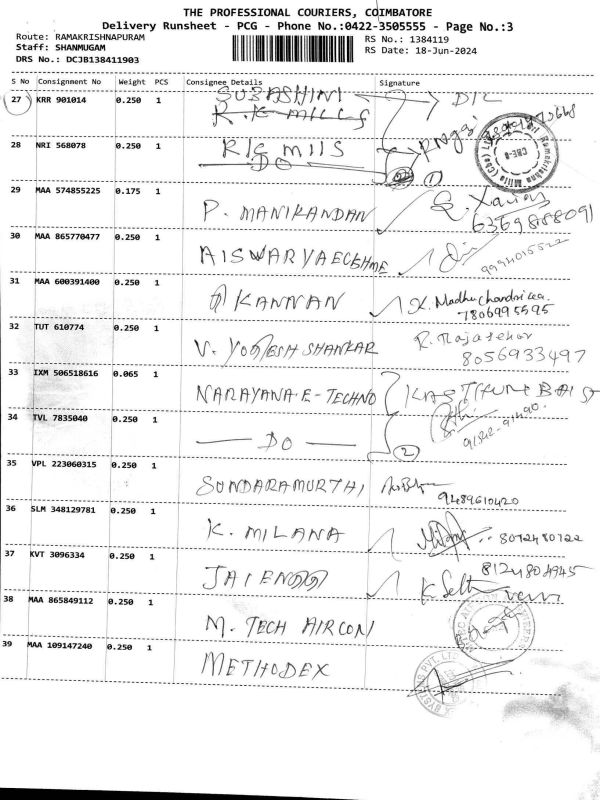 THE PROFESSIONAL COURIERS, COIMBATORE
Delivery Runsheet - PCG - Phone No.:0422-3505555 - Page No.:3
Route: RAMAKRISHNAPURAM RS No.: 1384119
Staff: SHANMUGAM RS Date: 18-Jun-2024
DRS No.: DCJB138411903
S No Consignment No Weight PCS Consignee Details Signature
27 KRR 901014 0.250 1 SUBASHINI D/L
R.K MILLS
28 NRI 568078 0.250 1 R K MIIS
DO 1
29 MAA 574855225 0.175 1 P. MANIKANDAN Xavier
6369888091
30 MAA 865770477 0.250 1 AISWARYA
9994015522
31 MAA 600391400 0.250 1 KANNAN K. Madhu Chandrika
7806995595
32 TUT 610774 0.250 1 V. YOGESH SHANKAR R. Rajasekar
8056933497
33 IXM 506518616 0.065 1 NARAYANA-E-TECHNO KASTHURI BAI
34 TVL 7835040 0.250 1 DO 2
35 VPL 223060315 0.250 1 SUNDARAMURTHI
9489610420
36 SLM 348129781 0.250 1 K. MILANA
37 KVT 3096334 0.250 1 8124804945
38 MAA 865849112 0.250 1 M. TECH AIRCON
39 MAA 109147240 0.250 1 METHODEX